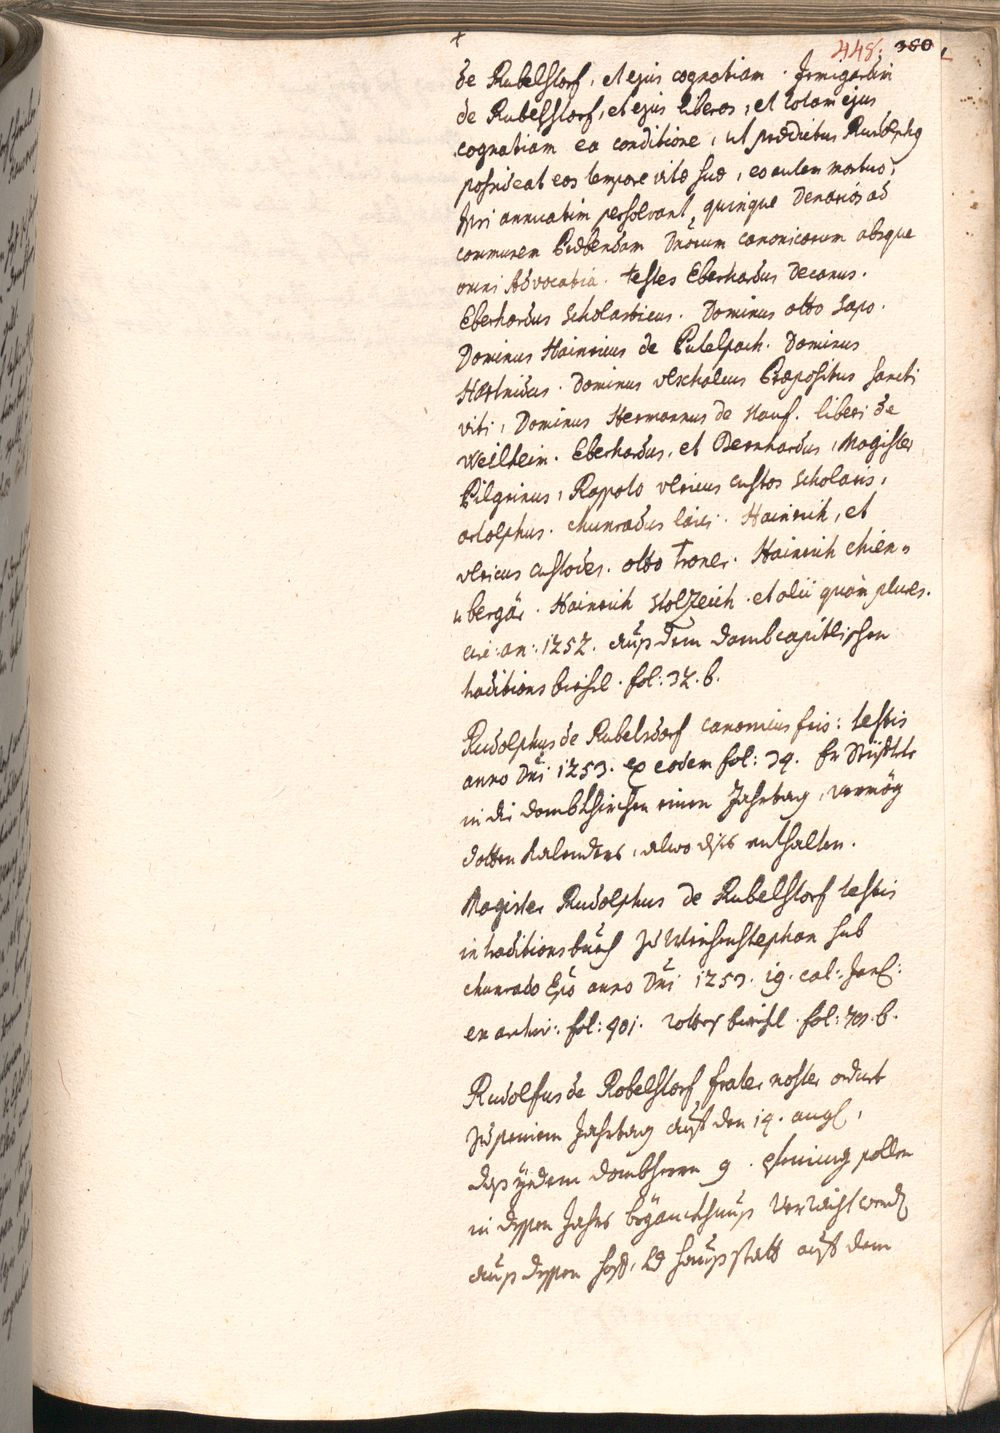 448. 380
de Rubelstorf, et ejus cognatiam. Irmigardim
de Rubelstorf, et ejus liberos, et totam ejus
cognatiam ea conditione, ut praedictus Rudolphg
possideat eos tempore vitae suae, eo autem mortuo,
ipsi annuatim persolvant quinque Denarios ad
communem Praebendam Dnorum canonicorum absque
omni Advocatia. testes Eberhardus Decanus.
Eberhardus Scholasticus. Dominus otto Sapo.
Dominus Hainricus de Putelpach. Dominus
Hartnidus. Dominus vlschalcus Praepositus Sancti
viti, Dominus Hermannus de Hauf. liberi de
Weilheim. Eberhardus, et Bernhardus, Magister
Pilgrinus, Rapoto vlricus custos scholaris,
ortolphus. chunradus laici. Hainrich, et
vlricus custodes. otto Troner. Hainrich chien=
=bergär. Hainrich Stolzeich. et alii quàm plures.
an: 1252. auß dem Dombcapitlischen
traditions biechl. fol: 32. b.
Rudolphus de Rubelsdorf canonicus fris: testis
anno Dni 1253. ex eodem fol: 34. Er Stüfftete
in die dombkhirchen einen Jahrtag, vermög
dotten Kalenders, alwo dises enthalten.
Magister Rudolphus de Rubelstorf testis
in traditionsbuech zu Weichenstephan sub
chunrado Epo anno Dni 1253. 19. cal:
ex archiv: fol: 401. rottes biechl. fol: 70. b.
Rudolfus de Robelstorf frater noster ordnet
zu seinem Jahrtag auf den 14. aug,
daß iedem dombherrn 9. pfening sollen
in dessen Jahrs begänckhnuß verraicht werd
auß dessen hoff, haußstatt auf dem